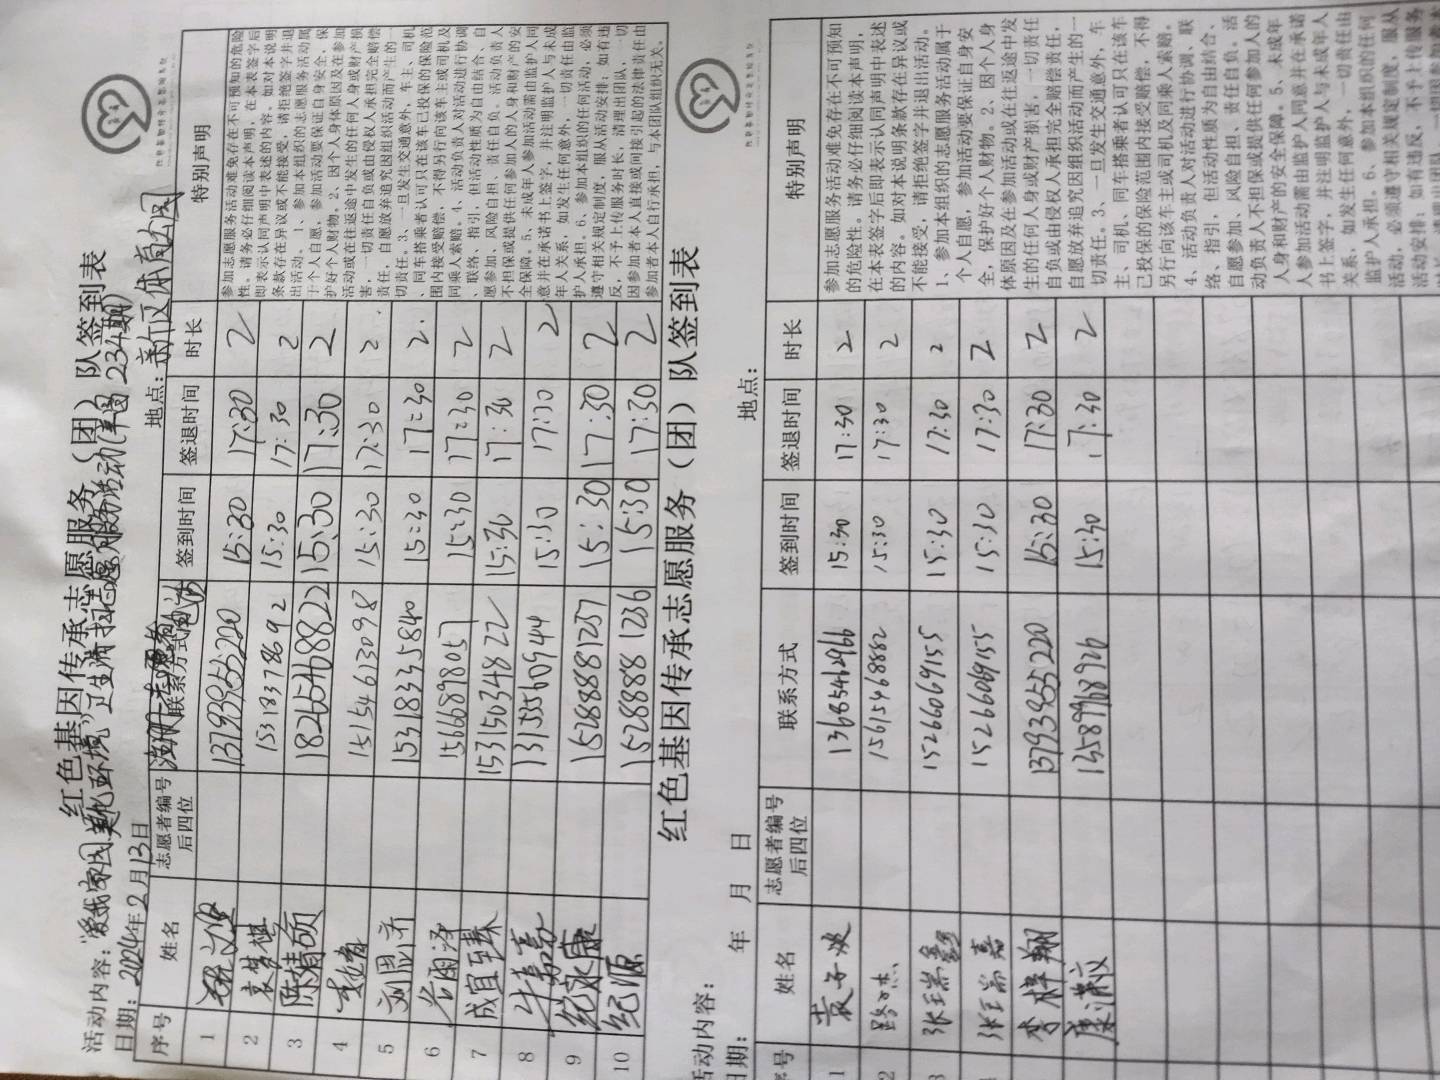 红色基因传承志愿服务（团）队签到表
活动内容："爱我家园，美化环境"卫生清扫志愿服务活动（丰图234期）
日期：2024年2月13日 地点：新汶体育公园
序号 姓名 志愿者编号后四位 联系方式 签到时间 签退时间 时长 特别声明
1 13793955220 15:30 17:30 2
2 袁梦棋 15318378692 15:30 17:30 2
3 陈婧硕 18265468822 15:30 17:30 2
4 15154613098 15:30 17:30 2
5 刘恩齐 15318335840 15:30 17:30 2
6 15668989057 15:30 17:30 2
7 成宜臻 15315034822 15:30 17:30 2
8 牛嘉嘉 13155560944 15:30 17:30 2
9 纪永康 15288881257 15:30 17:30 2
10 纪源 15288881256 15:30 17:30 2
参加志愿服务活动难免存在不可预知的危险
性。请务必仔细阅读本声明，在本表签字后
即表示认同声明中表述的内容。如对本说明
条款存在异议或不能接受，请拒绝签字并退
出活动。1、参加本组织的志愿服务活动属
于个人自愿，参加活动要保证自身安全，保
护好个人财物。2、因个人身体原因及在参加
活动或在往返途中发生的任何人身或财产损
害，一切责任自负或由侵权人承担完全赔偿
责任，自愿放弃追究因组织活动而产生的一
切责任。3、一旦发生交通意外，车主、司机
、同车搭乘者认可只在该车已投保的保险范
围内接受赔偿，不得另行向该车主或司机及
同乘人索赔。4、活动负责人对活动进行协调
、联络、指引，但活动性质为自由结合、自
愿参加、风险自担、责任自负。活动负责人
不担保或提供任何参加人的人身和财产的安
全保障。5、未成年人参加活动需由监护人同
意并在承诺书上签字，并注明监护人与未成
年人关系，如发生任何意外，一切责任由监
护人承担。6、参加本组织的任何活动，必须
遵守相关规定制度，服从活动安排；如有违
反，不予上传服务时长，清理出团队，一切
因参加者本人直接或间接引起的法律责任由
参加者本人自行承担，与本团队组织无关。
红色基因传承志愿服务（团）队签到表
活动内容：
日期： 年 月 日 地点：
序号 姓名 志愿者编号后四位 联系方式 签到时间 签退时间 时长 特别声明
1 袁子波 13685462966 15:30 17:30 2
2 路子杰 15615468882 15:30 17:30 2
3 张瑞鑫 15266069155 15:30 17:30 2
4 张瑞嘉 15266069155 15:30 17:30 2
李梓翔 13793955220 15:30 17:30 2
康潇文 13589918926 15:30 17:30 2
参加志愿服务活动难免存在不可预知
的危险性。请务必仔细阅读本声明，
在本表签字后即表示认同声明中表述
的内容。如对本说明条款存在异议或
不能接受，请拒绝签字并退出活动。
1、参加本组织的志愿服务活动属于
个人自愿，参加活动要保证自身安
全，保护好个人财物。2、因个人身
体原因及在参加活动或在往返途中发
生的任何人身或财产损害，一切责任
自负或由侵权人承担完全赔偿责任，
自愿放弃追究因组织活动而产生的一
切责任。3、一旦发生交通意外，车
主、司机、同车搭乘者认可只在该车
已投保的保险范围内接受赔偿，不得
另行向该车主或司机及同乘人索赔。
4、活动负责人对活动进行协调、联
络、指引，但活动性质为自由结合、
自愿参加、风险自担、责任自负。活
动负责人不担保或提供任何参加人的
人身和财产的安全保障。5、未成年
人参加活动需由监护人同意并在承诺
书上签字，并注明监护人与未成年人
关系，如发生任何意外，一切责任由
监护人承担。6、参加本组织的任何
活动，必须遵守相关规定制度，服从
活动安排；如有违反，不予上传服务